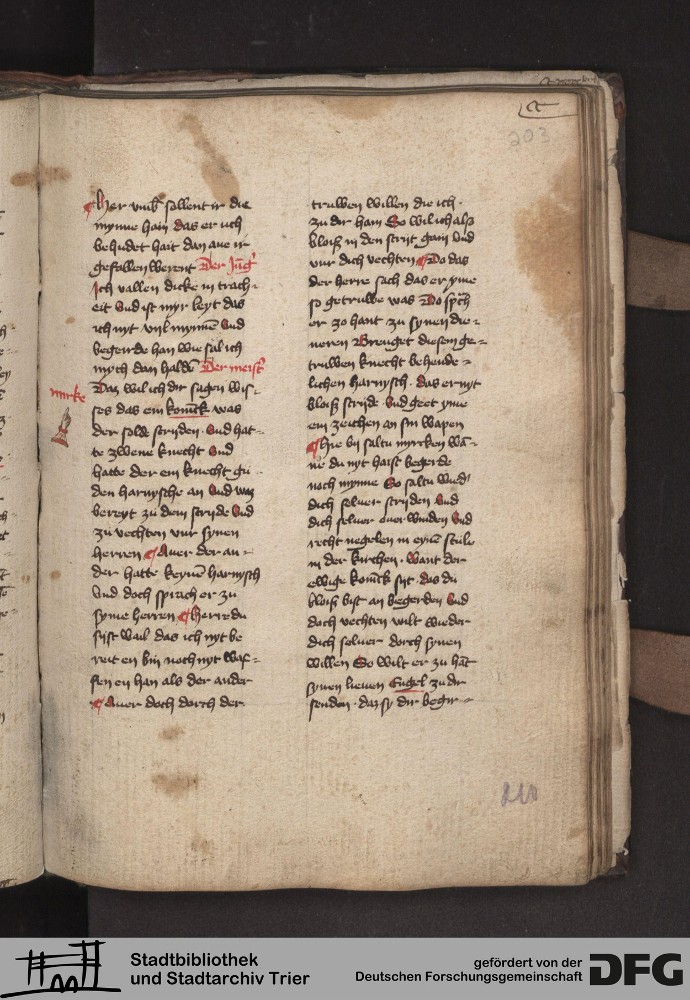 203
Her vmb sallent ir die
mynne hain das er uch
behudet hait dan aue ir
gefallen werent Der Jung'
Ich vallen dicke in trach-
eit Vnd ist myr leyt das
ich nyt vyl mynne Vnd
begeirde han wie sal ich
mych dan halden Der meist'
mirke
Daz wil ich dir sagen Wis-
ses das ein konick was
der solde stryden Vnd hat-
te zwene knecht Vnd
hatte der ein knecht gu-
den harnysche an Vnd was
bereyt zu dem stryde Vnd
zu vechten vur synen
herren Auer der an-
der hatte keynen harnysch
Vnd doch sprach er zu
syme herren Herre du
syst wail das ich nyt be
reit en bin noch nyt waf-
fen en han als der ander
Auer doch dorch der
truwen willen die ich
zu dir hain So wil ich als
bloiß in den stryt gain Vnd
vur dich vechten Do das
der herre sach das er yme
so getruwe was Do spch
er zo hant zu synen die-
neren Brenget diesem ge-
truwen knecht behende-
lichen harnysch das er nyt
bloiß stryde Vnd geet yme
ein zeichen an sin wapen
Hie by saltu myrcken wa-
ne du nyt haist begerde
noch mynne So saltu wed'
dich seluer stryden Vnd
dich seluer ouer winden Vnd
recht negelen in eynen stule
in der kirchen Want der
ewige konick syt das du
bloiß bist an begerden Vnd
doch vechten wilt weder
dich seluer dorch synen
willen So wilt er zu hat
synen lieuen Engel zu dir
senden daz sy dir begir-
Stadtbibliothek
und Stadtarchiv Trier
gefördert von der
Deutschen Forschungsgemeinschaft
DFG